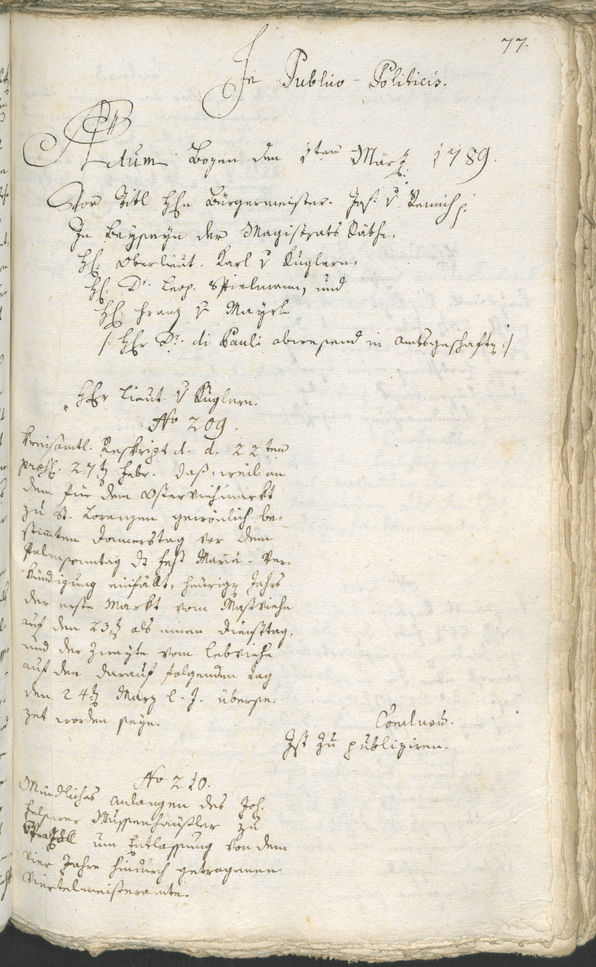 77.
In Publico-Politicis.
Actum Bozen den 1ten März 1789.
Vor Titl Hhn Bürgermeister. Jos: v
In Beyseyn der Magistrats Räthe.
Hh. Oberlieut. Karl v Kuglern.
Hh. Dr. Leop. Spielmann, und
Hh. Franz v. Mayrl
/: Hhr Dr. di Pauli abwesend in Amtsgeschäften :/
Hhr Lieut. v Kuglern.
No 209.
Kreisämtl. Reskript d. d. 22ten
27t. Febr. daß, weil an
dem für dem Osterviehmarkt
zu St. Lorenzen gewönlich be-
stimten Donnerstag vor dem
Palmsonntag ds Fest Mariä-Ver-
kündigung einfällt, heurigen Jahrs
der erste Markt vom Mastviehe
auf den 23t. als einen Dienstag,
und der Zweyte vom Lebviehe
auf den darauf folgenden Tag
den 24t. März l. J. überse-
zet worden seye.
Conclusum.
Ist zu publiziren.
No 210.
Mündliches Anlangen des Joh:
zu
um Entlassung von dem
vier Jahre hindurch getragenen
Viertelmeisteramte.